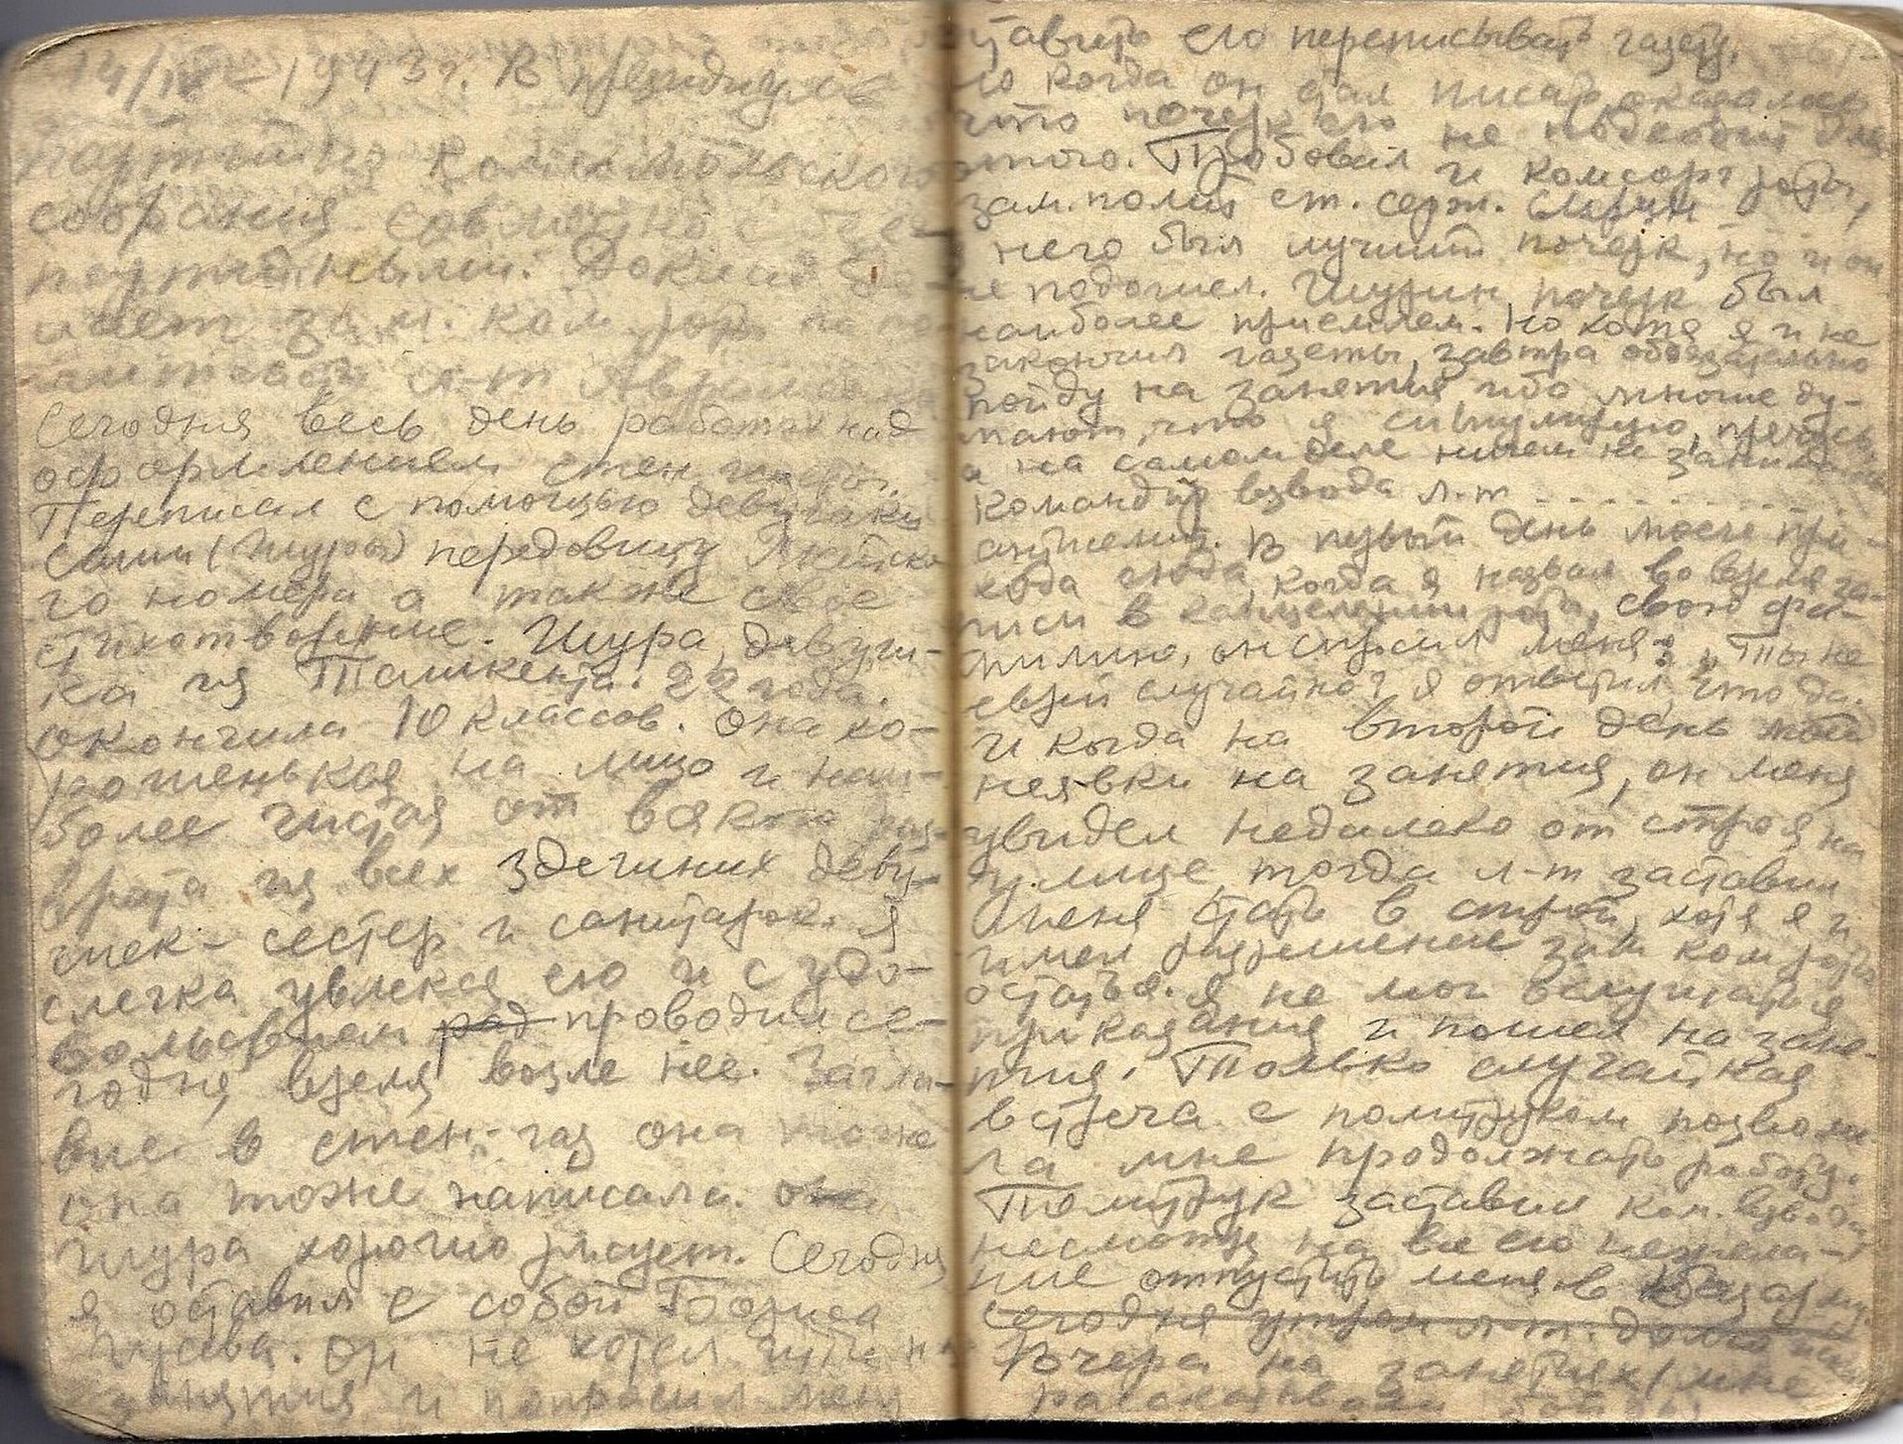 14/IV – 1943 г. В президиуме
партийно комсомольского
собрания совместно с бес-
партийными. Доклад де-
лает зам. ком. роты по по-
литчасти л-т
Сегодня весь день работал над
оформлением стен. газеты.
Переписал с помощью девушки
Саши (Шуры) передовицу
го номера а также свое
стихотворение. Шура, девуш-
ка из Ташкента. 22 года.
окончила 10 классов. Она хо-
рошенькая на лицо и наи-
более чистая от всякого раз-
врата из всех здешних деву-
шек – сестер и санитарок. Я
слегка увлекся ею и с удо-
вольствием рад проводил се-
годня, время возле нее. Загла-
вие в стен-газ она тоже
она тоже написала. она
Шура хорошо рисует. Сегодня
я оставил с собой Бориса
Гусева. Он не хотел идти на
занятия и попросил меня
ставить его переписывать газету.
Но когда он дал писать, оказалось
что почерк его не подходит для
этого. Пробовал и комсорг роты,
зам. полит ст. серж.
У него был лучший почерк, но и он
не подошел. Шурин почерк был
наиболее приемлем. Но хотя я и не
закончил газеты, завтра обязательно
пойду на занятия ибо многие ду-
мают, что я симулирую, прячусь,
а на самом деле ничем не занимаюсь
Командир взвода л-т - - - - - -
антисемит. В первый день моего при-
хода сюда, когда я назвал во время за-
писи в канцелярии роты, свою фа-
милию, он спросил меня: „Ты не
еврей случайно? Я ответил, что да.
И когда на второй день моей
неявки на занятия, он меня
увидел недалеко от строя на
улице тогда л-т заставил
меня стать в строй, хотя я и
имел разрешение зам ком роты
остаться. Я не мог ослушаться
приказания и пошел на заня-
тия. Только случайная
встреча с политруком позволи-
ла мне продолжать работу.
Политрук заставил ком. взвода
несмотря на все его нежела-
ние отпустить меня в казарму.
Сегодня утром л-т.
Вчера на занятиях мне
рассказывали